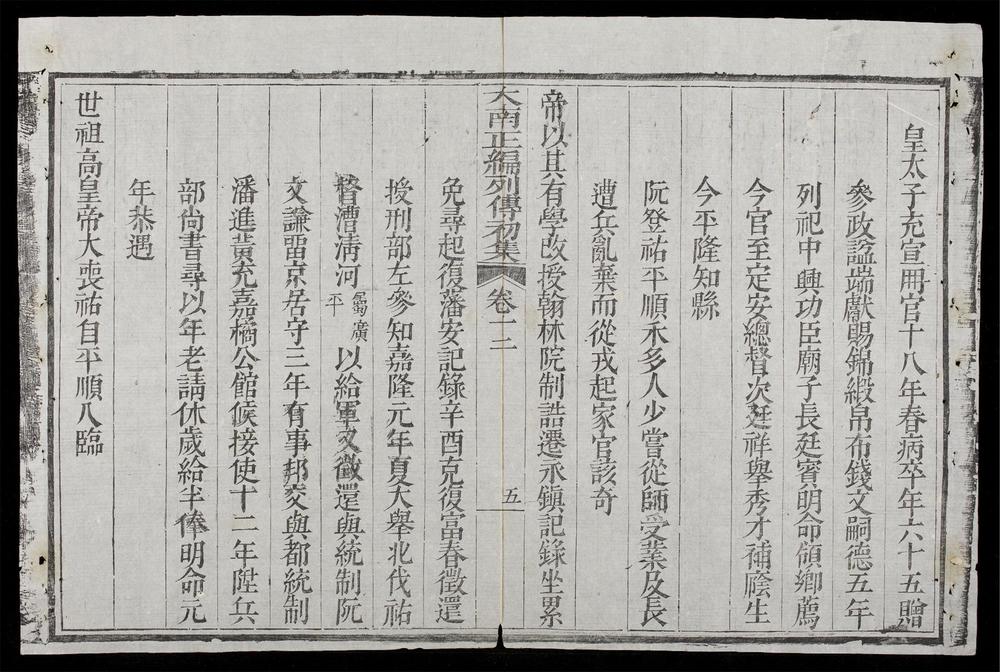 皇太子充宣冊官十八年春病卒年六十五贈
參政諡端獻賜錦緞帛布錢文嗣德五年
列祀中興功臣廟子長廷賓明命領鄉薦
今官至定安總督次廷祥舉秀才補廕生
今平隆知縣
阮登祐平順禾多人少嘗從師受業及長
遭兵亂棄而從戎起家官該奇
帝以其有學改授翰林院制誥遷永鎮記錄坐累
大南正編列傳初集
卷二十二
五
免尋起復藩安記錄辛酉克復富春徵還
授刑部左參知嘉隆元年夏大舉北伐祐
督漕淸河屬廣平以給軍又徵還與統制阮
文謙留京居守三年有事邦交與都統制
潘進黃充嘉橘公館候接使十二年陞兵
部尚書尋以年老請休歲給半俸明命元
年恭遇
世祖高皇帝大喪祐自平順入臨